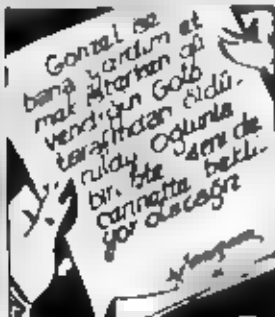 Gonzel ise
bana yardım et
mak isterken gü
vendiğin Golo
tarafından öldü.
rüldü Oğlunla
bir. lte seni de
cennette bekli.
yor olacağız